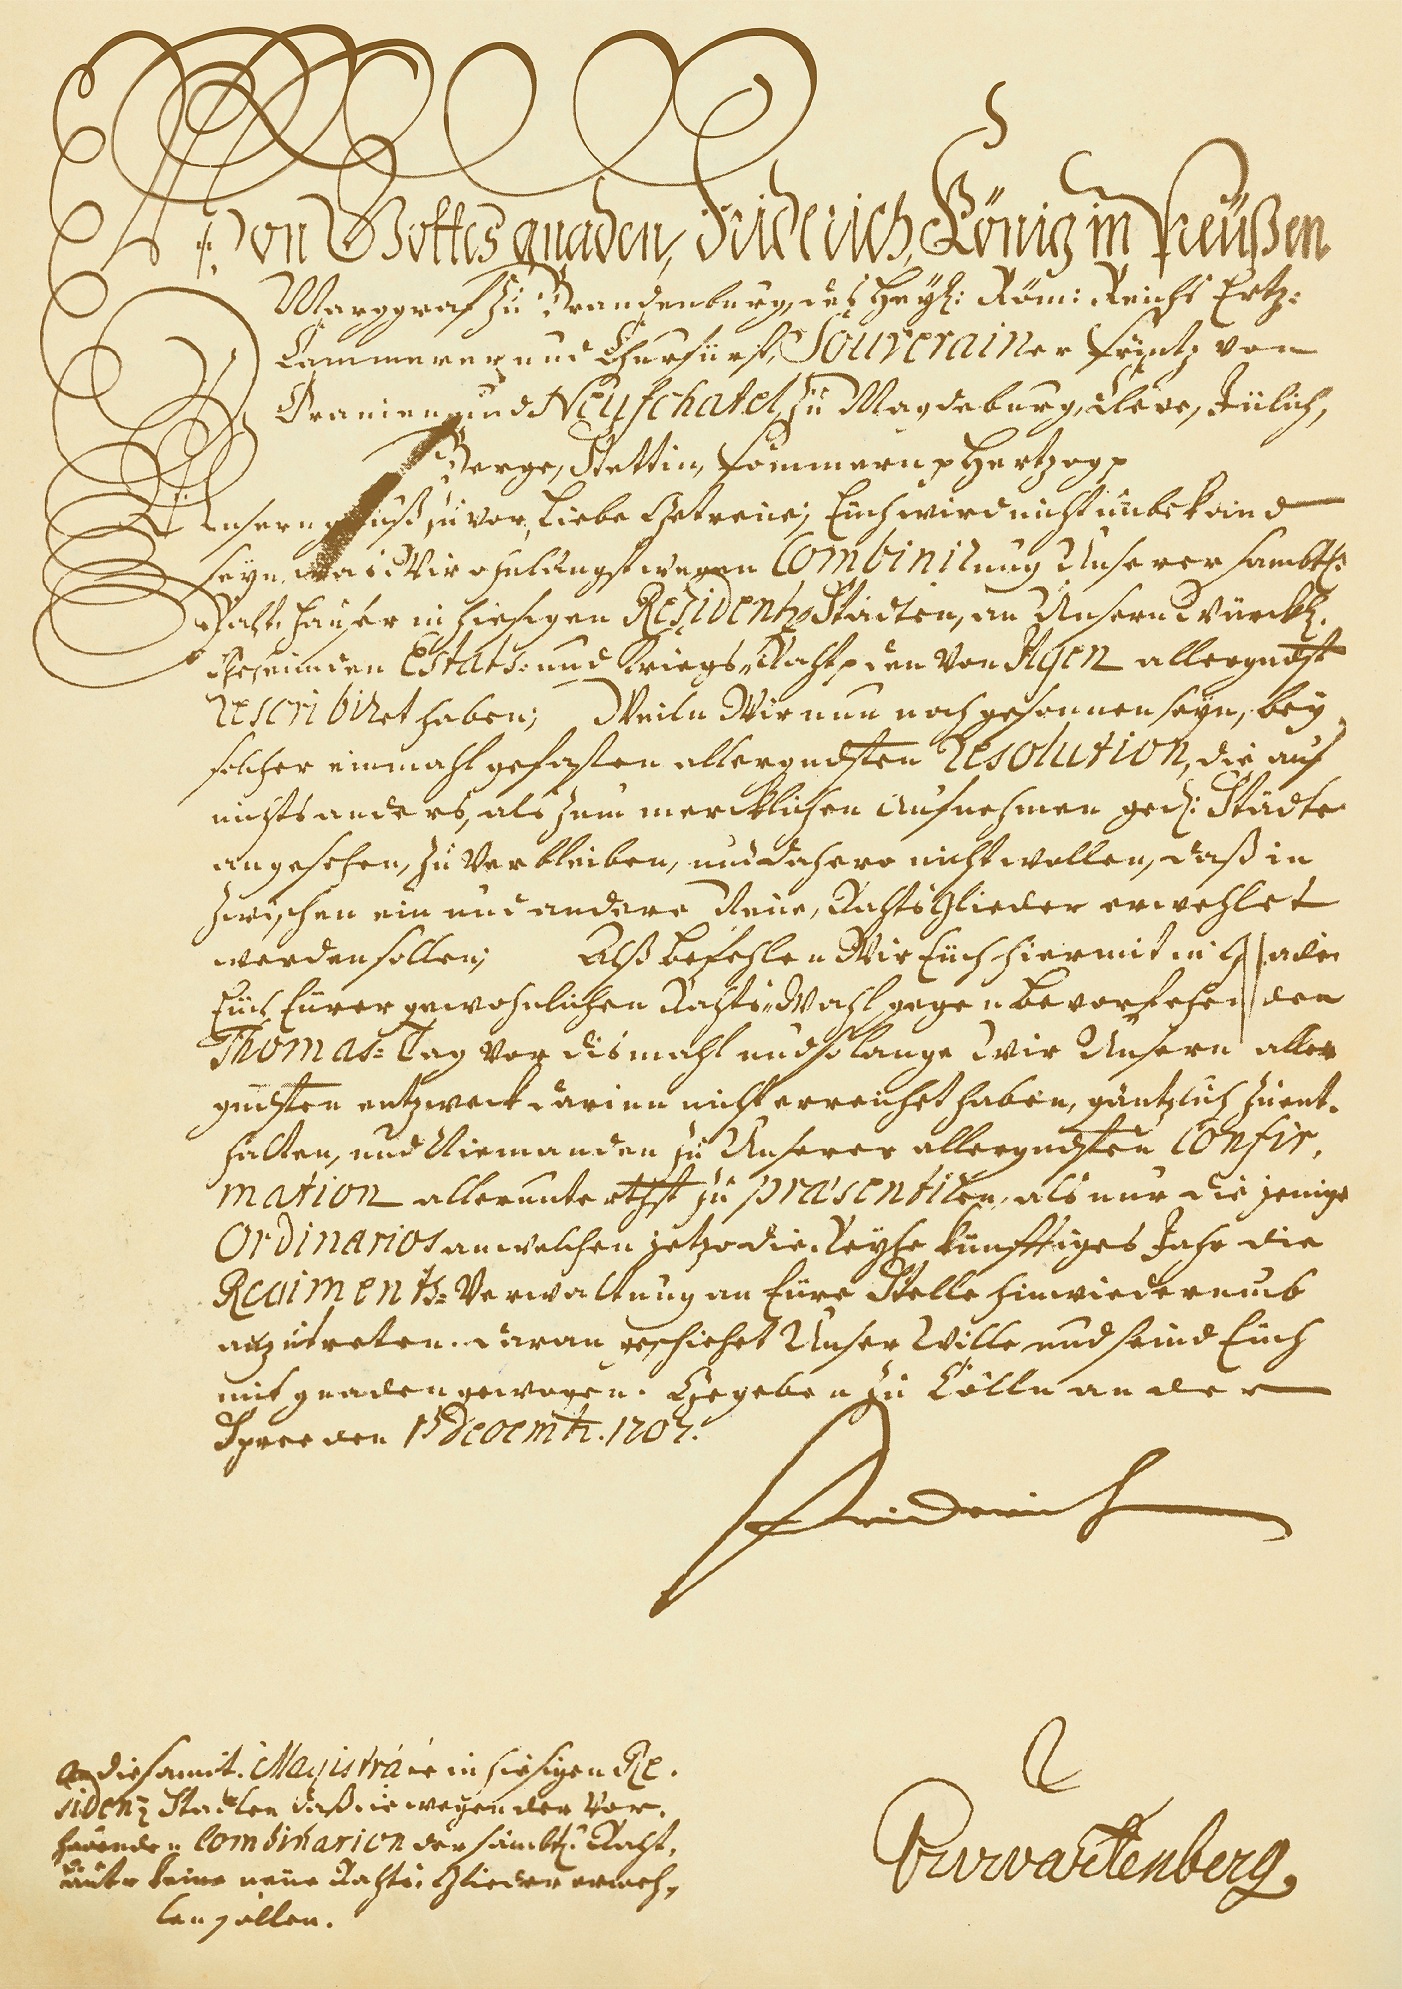 Von Gottes gnaden, Friderich, König in Preüßen
Marggraf zu Brandenburg, des Heyl: Röm: Reichs Ertz=
Cammerer und Churfürst, Souverainer Printz von
Oranien und Neufchatel, zu Magdeburg, Cleve, Jülich,
Berge, Stettin, Pommern p Hertzog p
Unsern gruß zuvor, Liebe Getreue; Euch wird nicht unbekand
seyn, was Wir ohnlängst wegen Combinirung Unserer sambtl:
Rahthäuser in hiesigen Residentz Städten, an Unsern Würckl.
Geheimden Estats= und Kriegs=Raht p den von Ilgen allergndst
rescribiret haben; Weiln Wir nun noch gesonnen seyn, bey
solcher einmahl gefasten allergndsten resolution, die auf
nichts anders, als zum mercklichen Aufnehmen gedl: Städte
angesehen, zu verbleiben, und dahero nicht wollen, daß in
zwischen ein und andere Neue Rahts Glieder erwehlet
werden sollen; Alß befehlen Wir Euch hiermit in Gnaden
Euch Eurer gewohnlichen Rahts=Wahl gegen bevorstehenden
Thomas=Tag vor dismahl und so lange Wir Unsern aller
gndsten entzweck darinn nicht erreichet haben, gäntzlich zu ent=
halten, und Niemanden zu Unserer allergndsten Confir=
mation allerunterthst zu præsentiren, als nur die jenige
Ordinarios an welchen jetzo die Reyhe künfftiges Jahr die
Regiments=Verwaltung an Eure Stelle hinwiederumb
anzutreten. daran geschiehet Unser Wille und seind Euch
mit gnaden gewogen. Gegeben zu Cölln an der
Spree den 15 Decembr. 1707.
Friderich
An die sämtl. Magistrate in hiesigen Re=
sidentz Städten daß sie wegen der vor=
habenden Combination der sämbtl: Raht=
häuser keine neue Rahts=Glieder erweh=
len sollen.
Gr v Wartenberg.